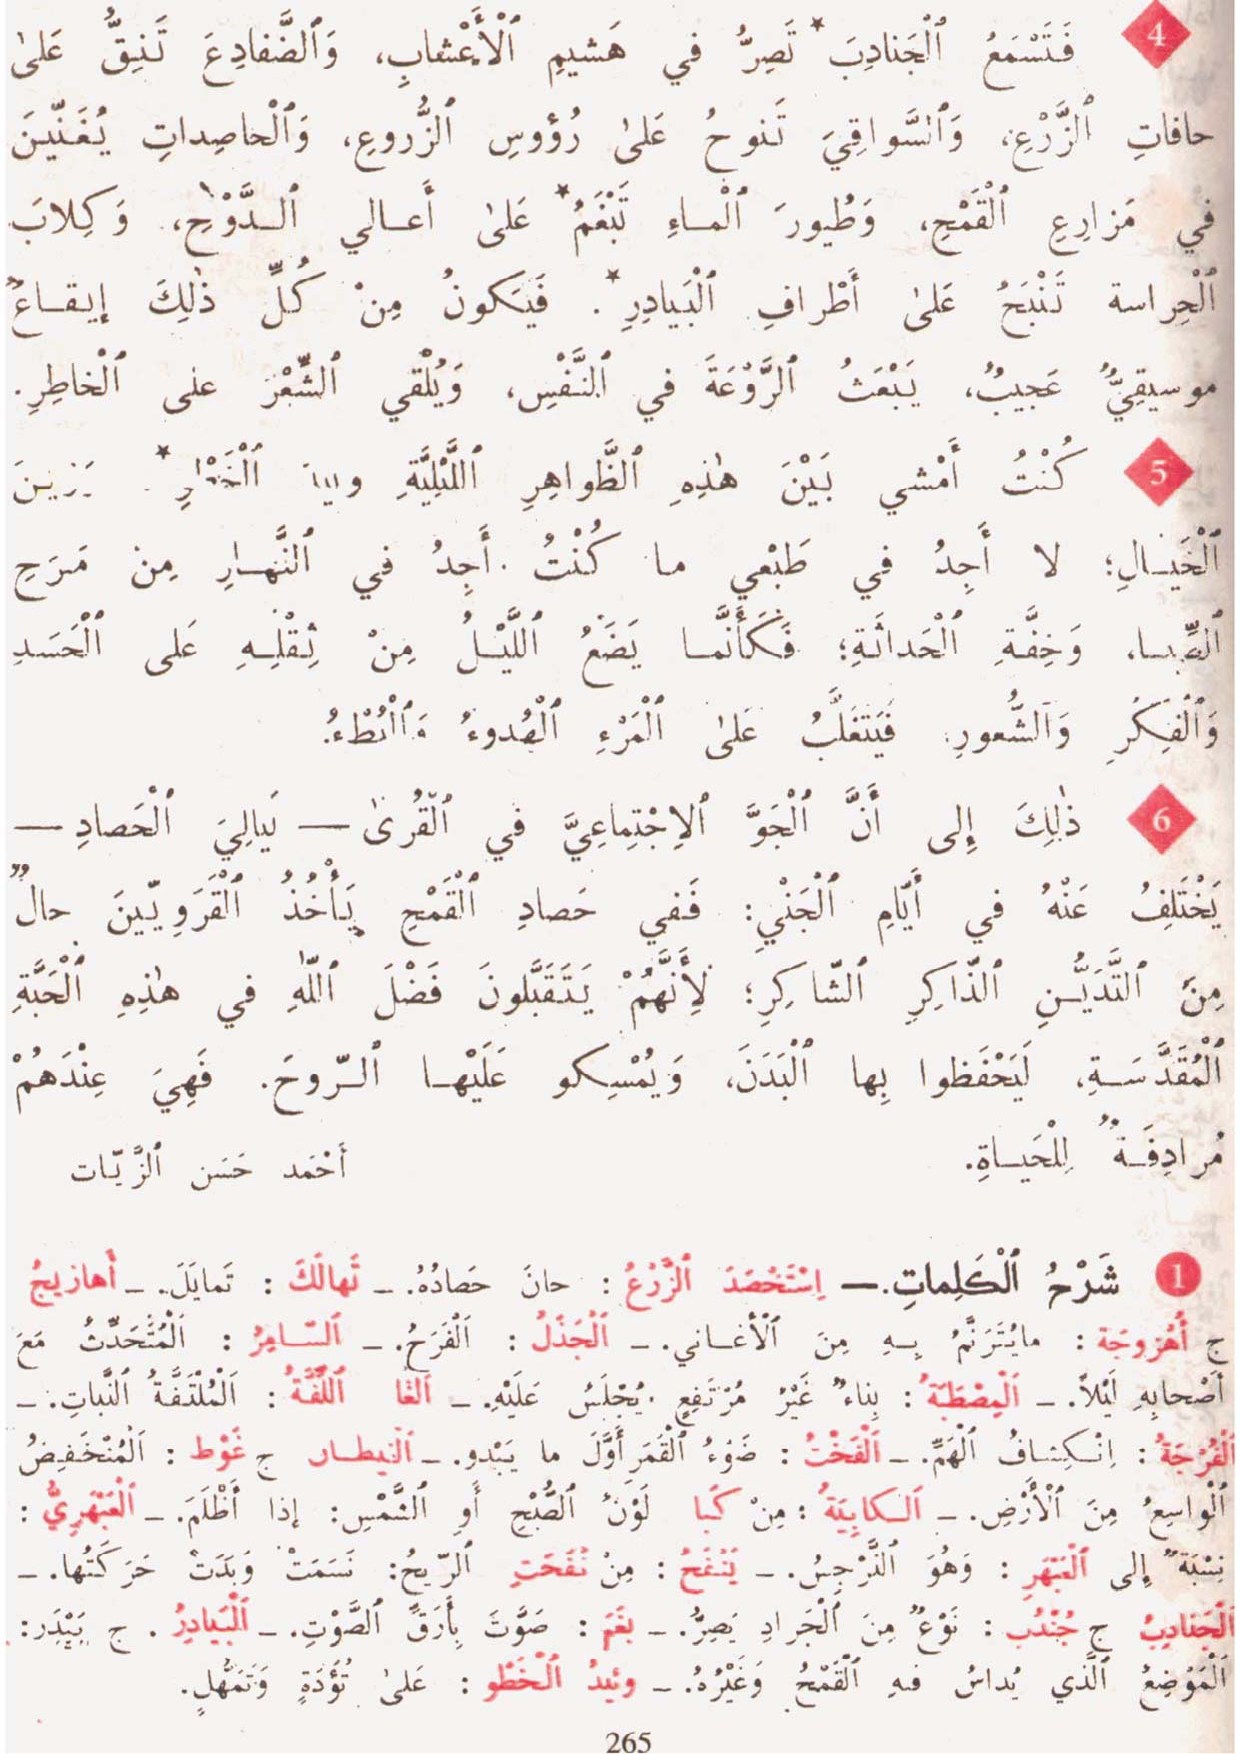 4 فَتَسْمَعُ ٱلْجَنادِبَ* تَصِرُّ في هَشيمِ ٱلْأَعْشابِ، وَٱلضَّفادِعَ تَنِقُّ عَلىٰ
حافاتِ ٱلزَّرْعِ، وَٱلسَّواقِيَ تَنوحُ عَلىٰ رُؤوسِ ٱلزُّروعِ، وَٱلْحاصِداتِ يُغَنّينَ
في مَزارِعِ ٱلْقَمْحِ، وَطُيورَ ٱلْماءِ تَبْغَمُ* عَلىٰ أَعالي ٱلدَّوْحِ، وَكِلابَ
ٱلْحِراسة تَنْبَحُ عَلىٰ أَطْرافِ ٱلْبَيادِرِ*. فَيَكونُ مِنْ كُلِّ ذٰلِكَ إيقاعٌ
موسيقِيٌّ عَجيبٌ، يَبْعَثُ ٱلرَّوْعَةَ في ٱلنَّفْسِ، وَيُلْقي ٱلشِّعْرَ على ٱلْخاطِرِ.
5 كُنْتُ أَمْشي بَيْنَ هٰذِهِ ٱلظَّواهِرِ ٱللَّيْلِيَّةِ ٱلْخَطْوِ* رَزينَ
ٱلْخَيالِ؛ لا أَجِدُ في طَبْعي ما كُنْتُ أَجِدُ في ٱلنَّهارِ مِن مَرَحِ
ٱلصِّبا، وَخِفَّةِ ٱلْحَداثَةِ؛ فَكَأَنَّما يَضَعُ ٱللَّيْلُ مِنْ ثِقْلِهِ عَلى ٱلْحَسَدِ
وَٱلْفِكَرِ وَٱلشُّعورِ. فَيَتَغَلَّبُ عَلىٰ ٱلْمَرْءِ ٱلْهُدوءُ وَٱلْبُطْءُ.
6 ذٰلِكَ إِلى أَنَّ ٱلْجَوَّ ٱلاِجْتِماعِيَّ في ٱلْقُرىٰ — لَيالِيَ ٱلْحَصادِ —
يَخْتَلِفُ عَنْهُ في أَيّامِ ٱلْجَنْيِ: فَفي حَصادِ ٱلْقَمْحِ يَأْخُذُ ٱلْقَرَوِيّينَ حالٌ
مِنَ ٱلتَّدَيُّنِ ٱلذّاكِرِ ٱلشّاكِرِ؛ لِأَنَّهُمْ يَتَقَبَّلونَ فَضْلَ ٱللّهِ في هٰذِهِ ٱلْحَبَّةِ
ٱلْمُقَدَّسَةِ، لَيَحْفَظوا بِها ٱلْبَدَنَ، وَيُمْسِكو عَلَيْها ٱلرّوحَ. فَهِيَ عِنْدَهُمْ
مُرادِفَةٌ لِلْحَياةِ.
أَحْمَد حَسَن ٱلزَّيّات
1 شَرْحُ ٱلْكَلِماتِ.— اِسْتَحْصَدَ ٱلزَّرْعُ : حانَ حَصادُهُ. — تَهالَكَ : تَمايَلَ. — أَهازيجُ
ج أُهْزوجَة : مايُتَرَنَّمُ بِهِ مِنَ ٱلْأَغاني. — اَلْجَذَلُ : اَلْفَرَحُ. — اَلسّامِرُ : اَلْمُتَحَدِّثُ مَعَ
أَصْحابِهِ لَيْلاً. — اَلْمِصْطَبَةُ : بِناءٌ غَيْرُ مُرْتَفِعٍ يُجْلَسُ عَلَيْهِ. — اَلْغا اَللَّفَّةُ : اَلْمُلْتَفَّةُ ٱلنَّباتِ. —
اَلْفُرْجَةُ : اِنْكِشافُ ٱلْهَمِّ. — اَلْفَخْتُ : ضَوْءُ ٱلْقَمَرِ أَوَّلَ ما يَبْدو. — اَلْغيطان ج غَوْط : اَلْمُنْخَفِضُ
ٱلْواسِعُ مِنَ ٱلْأَرْضِ. — اَلْكابِيَةُ : مِنْ كَبا لَوْنُ ٱلصُّبْحِ أَوِ ٱلشَّمْسِ: إذا أَظْلَمَ. — اَلْعَبْهَرِيُّ :
نِسْبَةً إِلى ٱلْعَبْهَرِ : وَهُوَ ٱلنَّرْجِسُ. — يَنْفَحُ : مِنْ نَفَحَتِ ٱلرّيحُ: نَسَمَتْ وَبَدَتْ حَرَكَتُها. —
اَلْجَنادِبُ ج جُنْدُب : نَوْعٌ مِنَ ٱلْجَرادِ يَصِرُّ. — بَغَمَ : صَوَّتَ بِأَرَقِّ ٱلصَّوْتِ. — اَلْبَيادِرُ . ج بَيْدَر:
اَلْمَوْضِعُ ٱلَّذي يُداسُ فيهِ ٱلْقَمْحُ وَغَيْرُهُ. — وئيدُ ٱلْخَطْوِ : عَلىٰ تُؤَدَةٍ وَتَمَهُّلٍ.
265